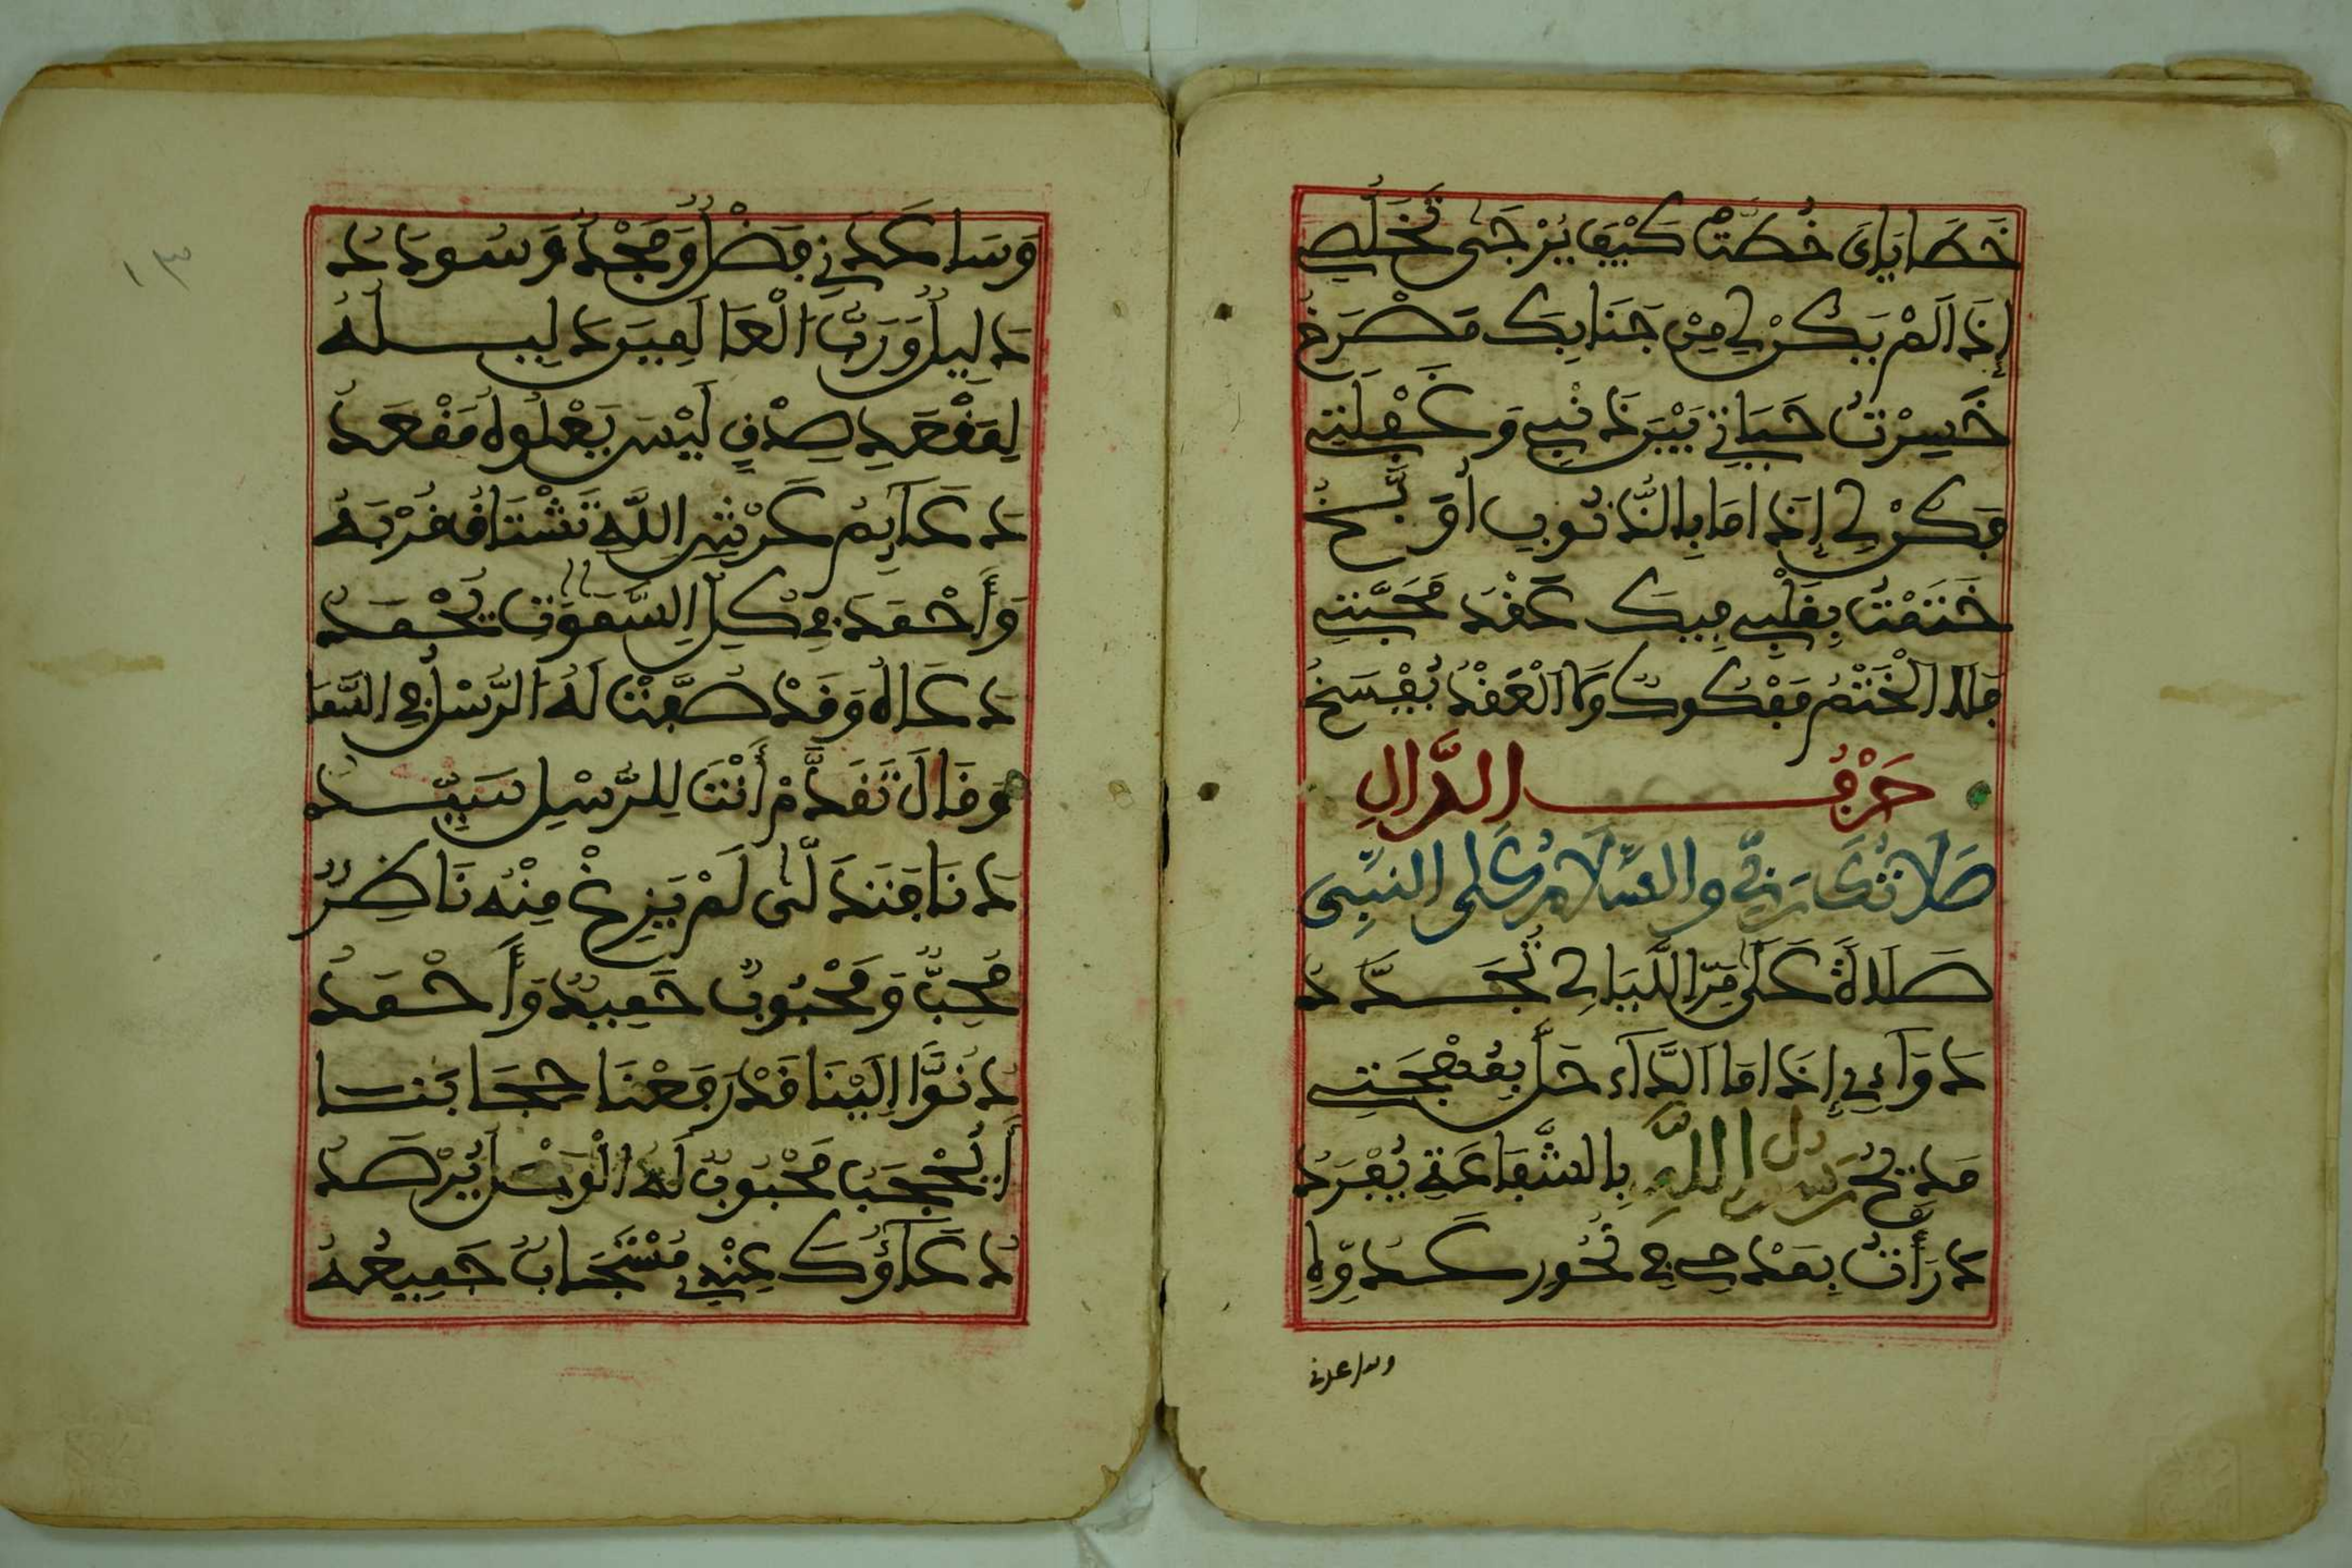 خَطَايَايَ خُطَّتْ كَيْفَ يُرْجَى تَخَلُّصِي
إِذَا لَمْ يَكُنْ لِي مِنْ جَنَابِكَ مَصْرَخُ
خَسِرْتُ حَيَاتِي بَيْنَ ذَنْبِي وَغَفْلَتِي
فَكُنْ لِي إِذَا مَا بِالذُّنُوبِ أُوَبَّخُ
خَتَمْتُ بِقَلْبِي فِيكَ عَقْدَ مَحَبَّتِي
فَلَا الْخَتْمُ مَفْكُوكٌ وَلَا الْعَقْدُ يُفْسَخُ
حَرْفُ الدَّالِ
صَلَاتُكَ رَبِّي وَالسَّلَامُ عَلَى النَّبِيِّ
صَلَاةً عَلَى مَرِّ اللَّيَالِي تُجَدَّدُ
دَوَآءِي إِذَا مَا الدَّآءُ حَلَّ بِمُهْجَتِي
مَدِيحُ رَسُولِ اللَّهِ بِالشَّفَاعَةِ يُفْرَدُ
دَرَأْتُ بِمَدْحِي فِي نُحُورِ عَدُوِّهِ
وساعدني
وَسَاعَدَنِي فَضْلٌ وَمَجْدٌ وَسُودَدُ
دَلِيلٌ وَرَبُّ الْعَالَمِينَ دَلِيلُهُ
لِمَقْعَدِ صِدْقٍ لَيْسَ يَعْلُوهُ مَقْعَدُ
دَعَآيِمُ عَرْشِ اللَّهِ تَشْتَاقُ قُرْبَهُ
وَأَحْمَدُ فِي كُلِّ السَّمَوَاتِ يُحْمَدُ
دَعَاهُ وَقَدْ صُفَّتْ لَهُ الرُّسْلُ فِي السَّمَا
وَقَالَ تَقَدَّمْ أَنْتَ لِلرُّسْلِ سَيِّدُ
دَنَا فَتَدَلَّى لَمْ يَزِغْ مِنْهُ نَاظِرٌ
مُحِبٌّ وَمَحْبُوبٌ حَمِيدٌ وَأَحْمَدُ
دُنُوًّا إِلَيْنَا قَدْ رَفَعْنَا حِجَابَنَا
أَيُحْجَبُ مَحْبُوبٌ لَهُ الْوَصْلُ يُرْصَدُ
دُعَآؤُكَ عِنْدِي مُسْتَجَابٌ جَمِيعُهُ
١٣